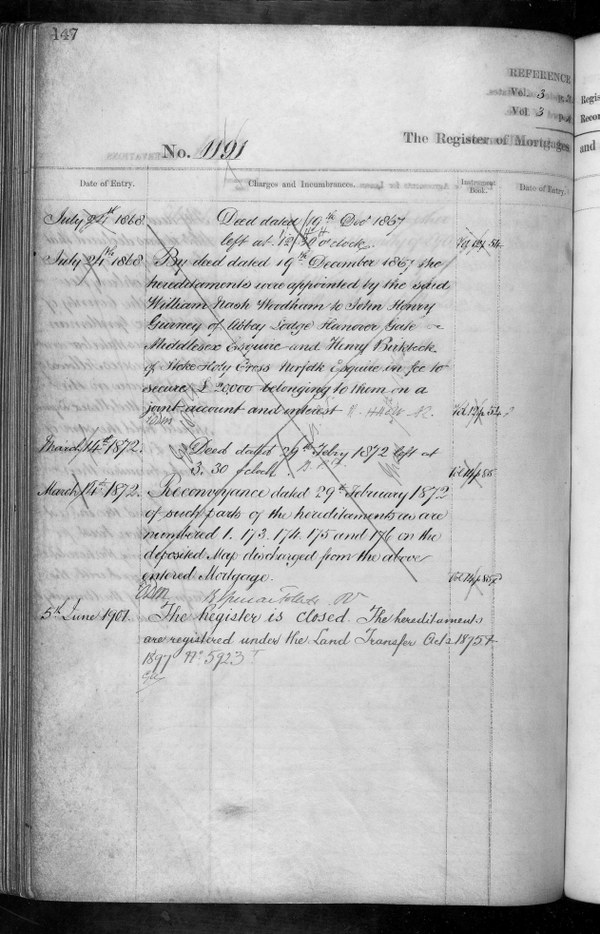 447
REFERENCE
Vol. 3
Vol 3
The Register of Mortgages
No. 1191
Date of Entry.
Charges and Incumbrances.
Instrument Book.
Date of Entry.
July 24th 1868
Deed dated 19th Decr 1867
left at 12 o'clock.
July 24th 1868
By deed dated 19th December 1867 the
hereditaments were appointed by the said
William Nash Woodham to John Henry
Gurney of Abbey Lodge Hanover Gate
Middlesex Esquire and Henry Birkbeck
of Stoke Holy Cross Norfolk Esquire in fee to
secure £20,000 belonging to them on a
joint account and interest
March 14th 1872.
Deed dated 29th Febry 1872 left at
3.30 o'clock
March 14th 1872.
Reconveyance dated 29th February 1872
of such parts of the hereditaments as are
numbered 1. 173. 174. 175 and 176 on the
deposited Map discharged from the above
entered Mortgage.
5th June 1901.
The Register is closed. The hereditaments
are registered under the Land Transfer Acts 1875 &
1897 No. 5923
Regis
Recor
and